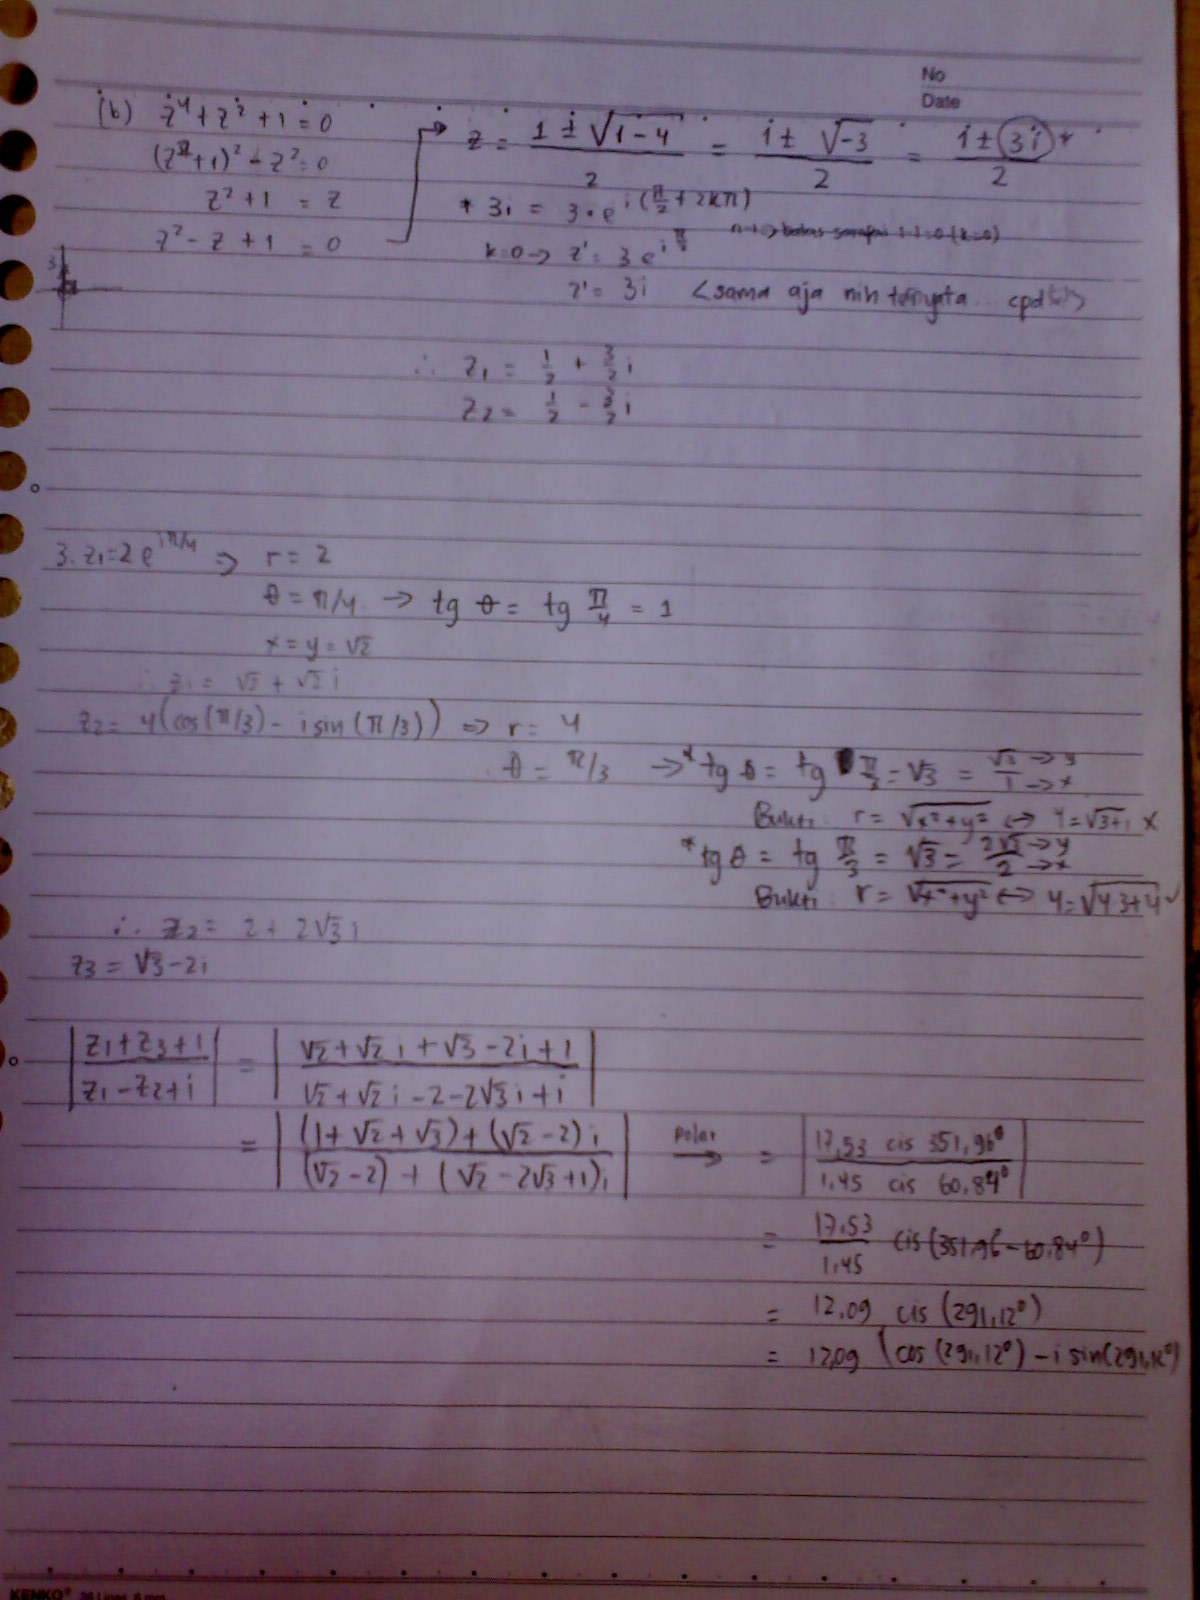 No
Date
(b) z⁴ + z² + 1 = 0
(z² + 1)² - z² = 0
z² + 1 = z
z² - z + 1 = 0
z = (1 ± √(1-4))/2 = (1 ± √-3)/2 = (1 ± 3i)/2 *
* 3i = 3 · e^{i(π/2 + 2kπ)}
k=0 → z' = 3e^{iπ/2}
z' = 3i <sama aja nih ternyata... cpd>
3
∴ z₁ = 1/2 + 3/2 i
z₂ = 1/2 - 3/2 i
3. z₁ = 2e^{iπ/4} ⇒ r = 2
θ = π/4 → tg θ = tg π/4 = 1
x = y = √2
∴ z₁ = √2 + √2 i
z₂ = 4(cos(π/3) - i sin(π/3)) ⇒ r = 4
θ = π/3 → * tg θ = tg π/3 = √3 = √3/1 → y → x
Bukti: r = √(x²+y²) ↔ 4 = √(3+1) ×
* tg θ = tg π/3 = √3 = 2√3/2 → y → x
Bukti: r = √(x²+y²) ↔ 4 = √(4·3+4) ✓
∴ z₂ = 2 + 2√3 i
z₃ = √3 - 2i
|(z₁+z₃+1)/(z₁-z₂+i)| = |(√2+√2 i+√3-2i+1)/(√2+√2 i-2-2√3 i+i)|
= |((1+√2+√3)+(√2-2)i)/((√2-2)+(√2-2√3+1)i)| polar → = |(17,53 cis 351,96°)/(1,45 cis 60,84°)|
= 17,53/1,45 cis(351,96-60,84°)
= 12,09 cis (291,12°)
= 12,09 (cos (291,12°) - i sin(291,12°)
KENKO